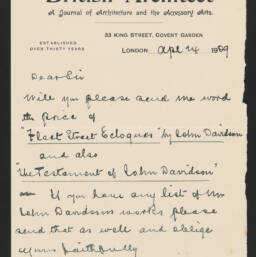 British Architect
A Journal of Architecture and the Accessory Arts.
33 KING STREET, COVENT GARDEN
ESTABLISHED
OVER THIRTY YEARS
LONDON Apl 24 1909
Dear Sir
Will you please send me word
the price of
"Fleet Street Eclogues" by John Davidson
and also
"the Testament of John Davidson"
If you have any list of Mr
John Davidsons works please
send that as well and oblige
yours faithfully